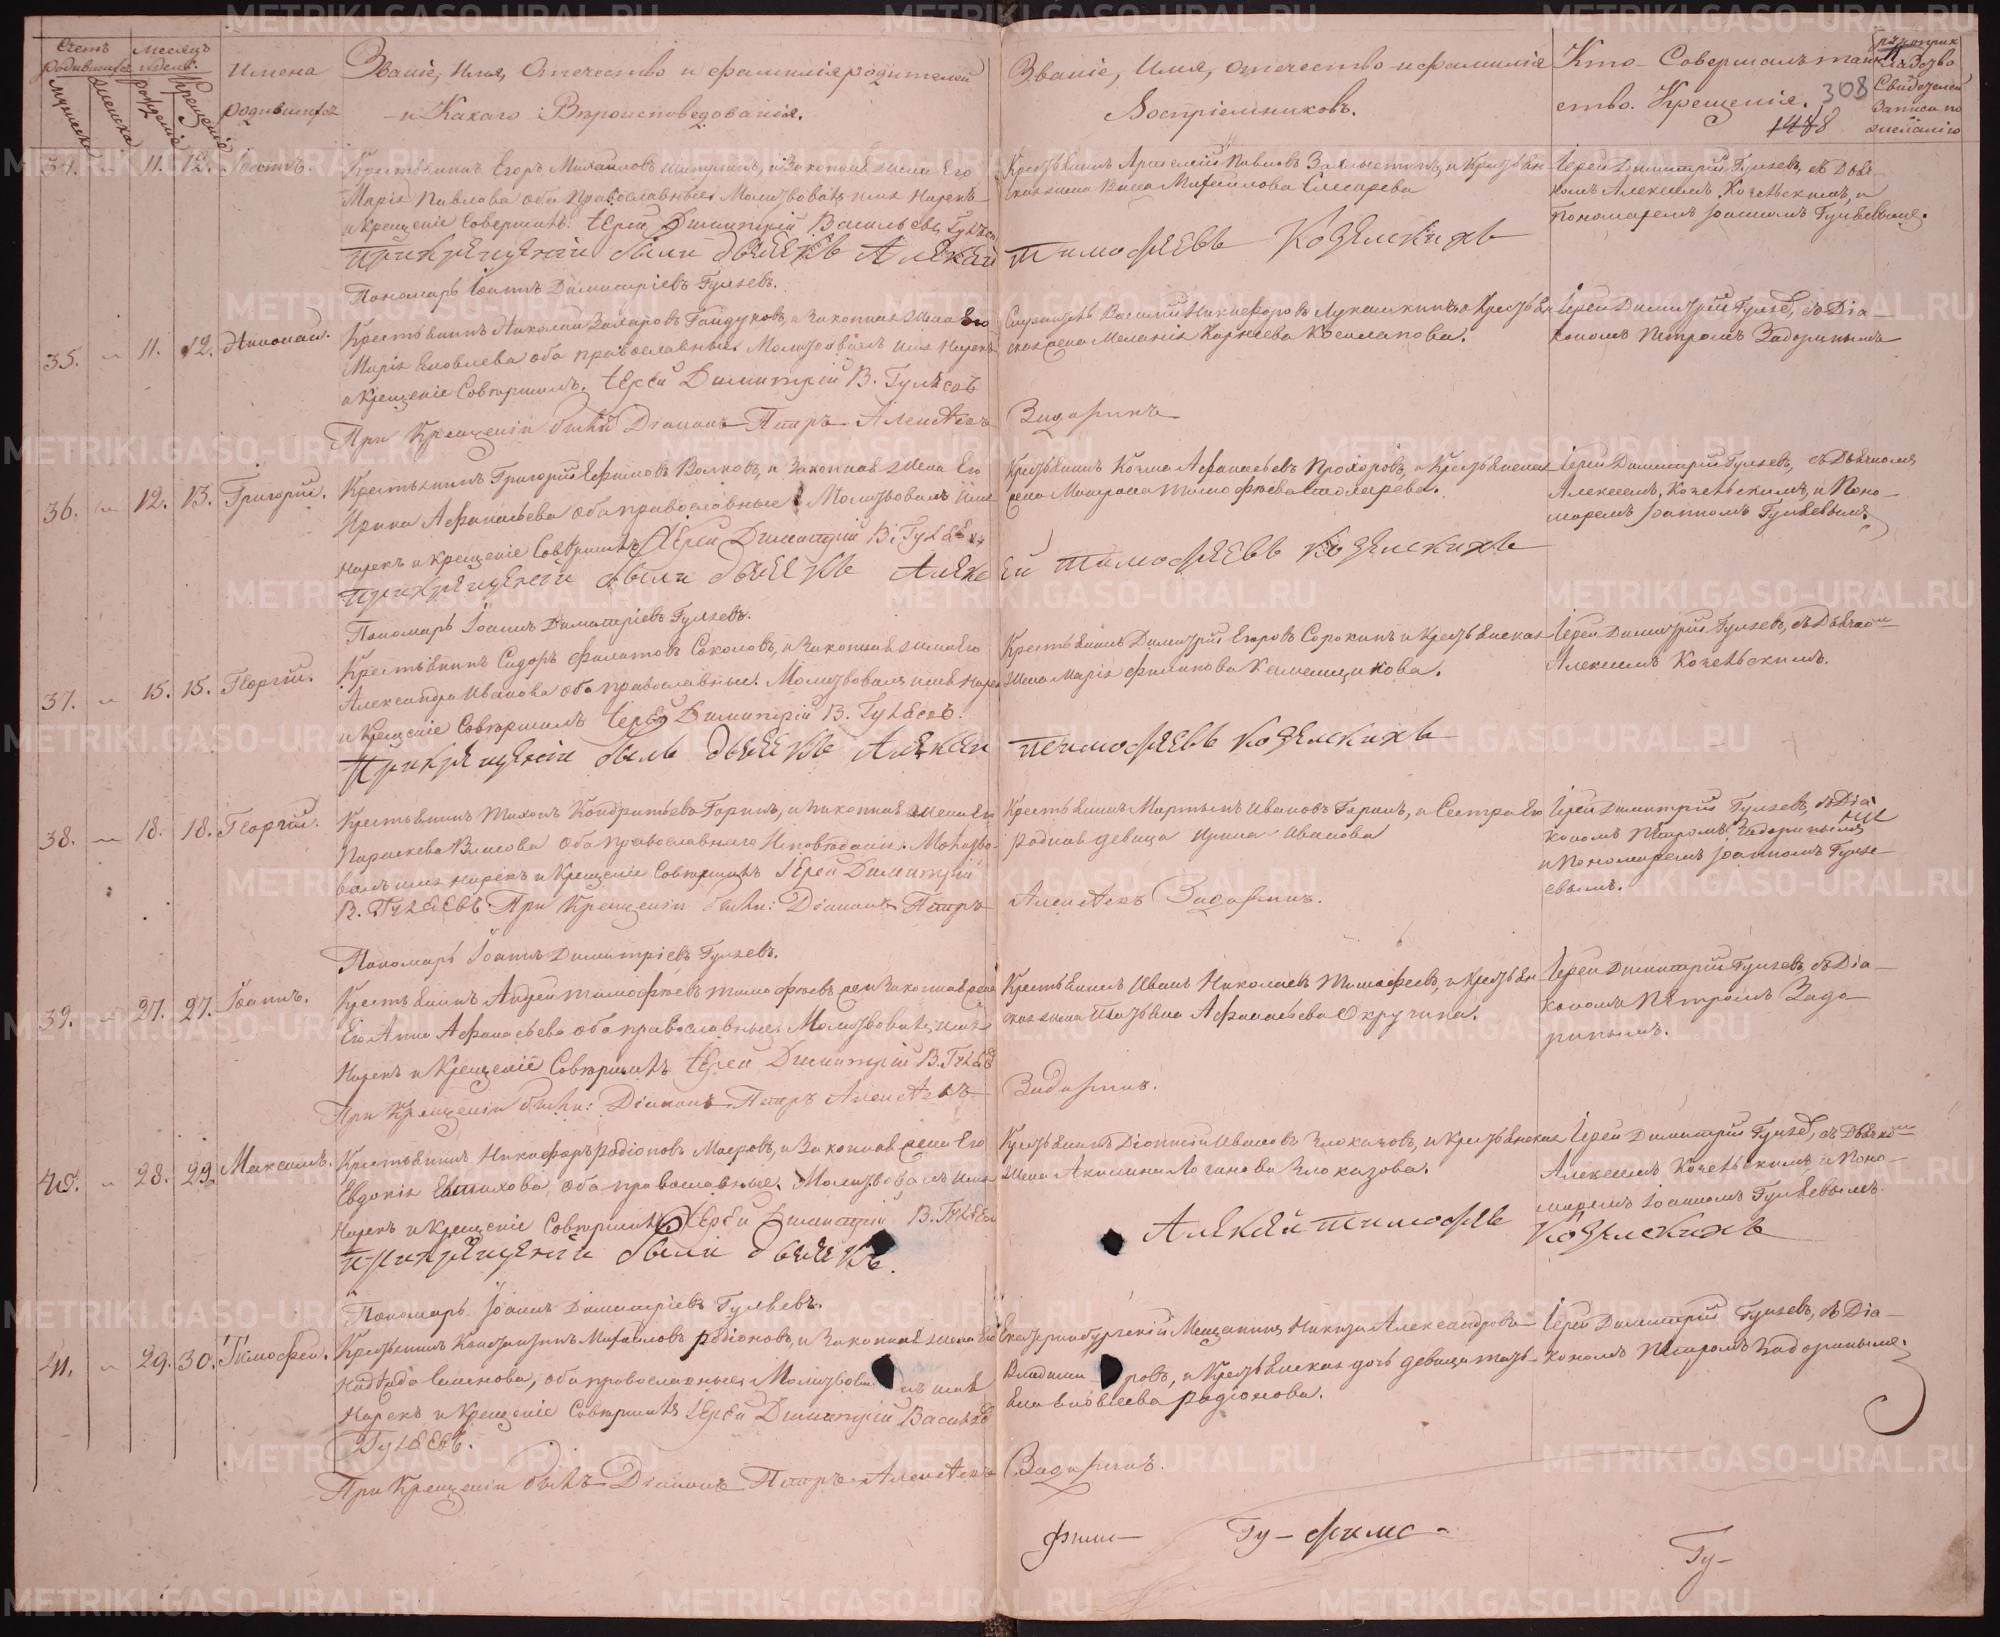 Счетъ родившихся
мужеска
женска
Месяцъ и день.
рожденіе
Крещеніе
Имена
родившихся
Званіе, Имя, Отечество и фамилія родителей
и Какаго Вѣроисповедованія.
Званіе, Имя, отечество и фамилія
Воспріемниковъ.
Кто Совершалъ таин
ство Крещенія.
308
1488
рукоприк
ладство
Свидетелей
Записи по
желанію
34. 11. 12. Іоаннъ.
Крестьянинъ Егоръ Михайловъ и законная жена Его
Марія Павлова оба православные. Молитвовалъ имя Нарекъ
и Крещеніе Совершилъ: Іерей Димитрій Васильевъ Гуляевъ
При крещеніи были дьячекъ Алексей
Пономарь Іоаннъ Димитріевъ Гуляевъ.
Крестьянинъ Артемій Павловъ и Крестьян
ская жена Михайлова Слесарева
тимофеевъ Козелскихъ
Іерей Димитрій Гуляевъ, съ Дьяч-
комъ Алексеемъ Козельскимъ, и
Пономаремъ Іоанномъ Гуляевымъ.
35. 11. 12. Николай.
Крестьянинъ Николай Захаровъ Гайдуковъ, и законная жена Его
Марія Яковлева оба православные. Молитвовалъ имя Нарекъ
и Крещеніе Совершилъ. Іерей Димитрій В. Гуляевъ
При Крещеніи былъ Діаконъ Петръ Алексѣевъ
Василий Никифоровъ Лукашкинъ и Крестьян
ская жена Меланія Карпеева Косолапова.
Задоринъ
Іерей Димитрій Гуляевъ, съ Діа-
кономъ Петромъ Задоринымъ
36. 12. 13. Григорій.
Крестьянинъ Григорій Ефимовъ Волковъ, и Законная жена Его
Ирина Афанасьева оба православные. Молитвовалъ Имя
Нарекъ и крещеніе Совершилъ Іерей Димитрій В. Гуляевъ
При крещеніи были дьячекъ Алексей
Пономарь Іоаннъ Димитріевъ Гуляевъ.
Крестьянинъ Козма Афанасьевъ Прохоровъ, и Крестьянская
жена Матрона тимофѣева столярева.
тимофеевъ Козелскихъ
Іерей Димитрій Гуляевъ, съ Дьячкомъ
Алексеемъ, Козельскимъ, и Поно-
маремъ Іоанномъ Гуляевымъ.
37. 15. 15. Георгій.
Крестьянинъ Сидоръ филатовъ Соколовъ, и Законная жена Его
Александра Иванова оба православные. Молитвовалъ имя Нарек
и Крещеніе Совершилъ Іерей Димитрій В. Гуляевъ.
При крещеніи былъ дьячекъ Алексеи
Крестьянинъ Димитрій Егоровъ Сорокинъ и Крестьянская
жена Марія филипова Каменщикова.
тимофеевъ Козелскихъ
Іерей Димитрій Гуляевъ, съ Дьячком
Алексеемъ Козельскимъ.
38. 18. 18. Георгій.
Крестьянинъ Тихонъ Кондратьевъ Горинъ, и законная жена Его
Параскева Власова оба православнаго Исповѣданія. Молитво-
валъ имя нарекъ и Крещеніе Совершилъ Іерей Димитрій
В. Гуляевъ При Крещеніи были: Діаконъ Петръ
Пономарь Іоаннъ Димитріевъ Гуляевъ.
Крестьянинъ Мартынъ Ивановъ Горинъ, и Сестра Его
родная девица Ирина Иванова
Алексѣевъ Задоринъ.
Іерей Димитрій Гуляевъ, съ Діа
кономъ Петромъ Задоринымъ
и Пономаремъ Іоанномъ Гуля-
евымъ.
39. 27. 27. Іоаннъ.
Крестьянинъ Андрей тимофѣевъ тимофѣевъ и Законная жена
Его Анна Афанасьева оба православные. Молитвовалъ, имя
Нарекъ и Крещеніе Совершилъ Іерей Димитрій В. Гуляевъ
При Крещеніи былъ: Діаконъ Петръ Алексѣевъ
Крестьянинъ Иванъ Николаевъ Тимофеевъ, и Крестьян
ская жена Татьяна Афанасьева Округина.
Задоринъ.
Іерей Димитрій Гуляевъ, съ Діа-
кономъ Петромъ Задо-
ринымъ.
40. 28. 29. Максимъ.
Крестьянинъ Никифоръ Родіоновъ Маеровъ, и Законная жена Его
Евдокія Евтихова, оба православные. Молитвовалъ имя
Нарекъ и Крещеніе Совершилъ Іерей Димитрій В. Гуляевъ
При крещеніи были дьячекъ.
Пономарь Іоаннъ Димитріевъ Гуляевъ.
Крестьянинъ Діонисій Ивановъ Злоказовъ, и Крестьянская
жена Акилина Логинова Злоказова.
Алексей тимофеевъ Козелскихъ
Іерей Димитрій Гуляевъ, съ Дьячком
Алексеемъ Козельскимъ и Поно-
маремъ Іоанномъ Гуляевымъ.
41. 29. 30. Тимофей.
Крестьянинъ Константинъ Михайловъ родіоновъ, и Законная жена Его
Надежда Семенова, оба православные, Молитвовалъ имя
Нарекъ и Крещеніе Совершилъ Іерей Димитрій Васильевъ
Гуляевъ.
При Крещеніи былъ Діаконъ Петръ Алексѣевъ
Екатеринбургскій Мещанинъ Никита Александровъ
и Крестьянская дочь девица тать-
яна родіонова.
Задоринъ.
Іерей Димитрій Гуляевъ, съ Діа-
кономъ Петромъ Задоринымъ.
Гу-
METRIKI.GASO-URAL.RU